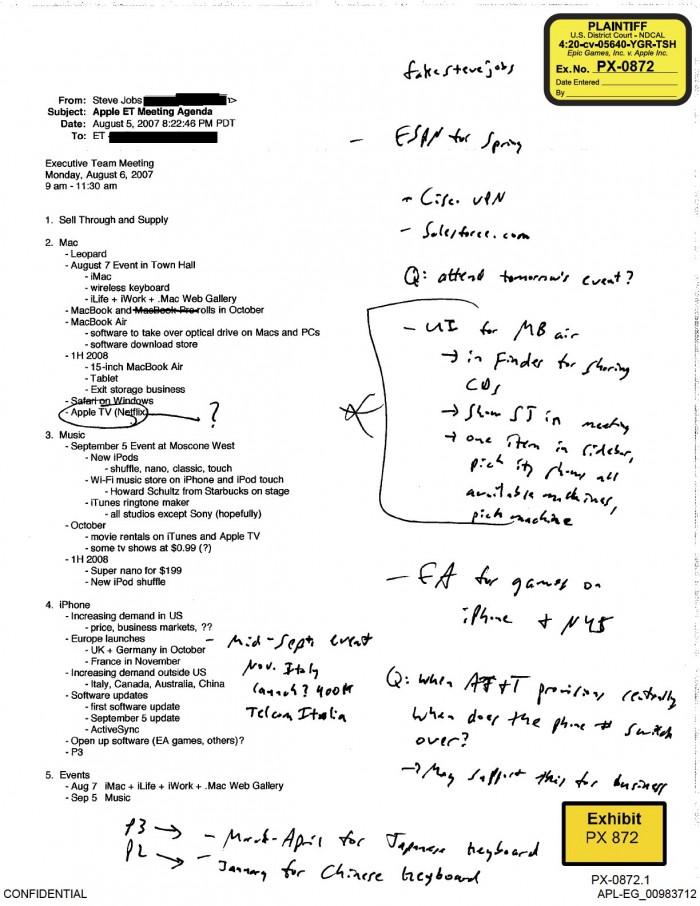 PLAINTIFF
U.S. District Court - NDCAL
4:20-cv-05640-YGR-TSH
Epic Games, Inc. v. Apple Inc.
Ex. No. PX-0872
Date Entered
By
fakestevejobs
From: Steve Jobs
Subject: Apple ET Meeting Agenda
Date: August 5, 2007 8:22:46 PM PDT
To: ET
- ESPN for Spring
Executive Team Meeting
Monday, August 6, 2007
9 am - 11:30 am
- Cisco VPN
- Salesforce.com
Q: attend tomorrow's event?
1. Sell Through and Supply
2. Mac
- Leopard
- August 7 Event in Town Hall
- iMac
- wireless keyboard
- iLife + iWork + .Mac Web Gallery
- MacBook and MacBook Pro rolls in October
- MacBook Air
- software to take over optical drive on Macs and PCs
- software download store
- 1H 2008
- 15-inch MacBook Air
- Tablet
- Exit storage business
- Safari on Windows
- Apple TV (Netflix) → ?
- UI for MB air
→ in Finder for sharing
CDs
→ Show SJ in meeting
→ one item in sidebar,
pick it, shows all
available machines,
pick machine
3. Music
- September 5 Event at Moscone West
- New iPods
- shuffle, nano, classic, touch
- Wi-Fi music store on iPhone and iPod touch
- Howard Schultz from Starbucks on stage
- iTunes ringtone maker
- all studios except Sony (hopefully)
- October
- movie rentals on iTunes and Apple TV
- some tv shows at $0.99 (?)
- 1H 2008
- Super nano for $199
- New iPod shuffle
- EA for games on
iPhone +
4. iPhone
- Increasing demand in US
- price, business markets, ??
- Europe launches
- UK + Germany in October
- France in November
- Increasing demand outside US
- Italy, Canada, Australia, China
- Software updates
- first software update
- September 5 update
- ActiveSync
- Open up software (EA games, others)?
- P3
- Mid-Sept event
Nov. Italy
launch? 400M
Telecom Italia
Q: When AT&T provisions centrally
when does the phone # switch
over?
→ May support this for business
5. Events
- Aug 7 iMac + iLife + iWork + .Mac Web Gallery
- Sep 5 Music
P3 → - March-April for Japanese keyboard
P2 → - January for Chinese keyboard
Exhibit
PX 872
CONFIDENTIAL
PX-0872.1
APL-EG_00983712